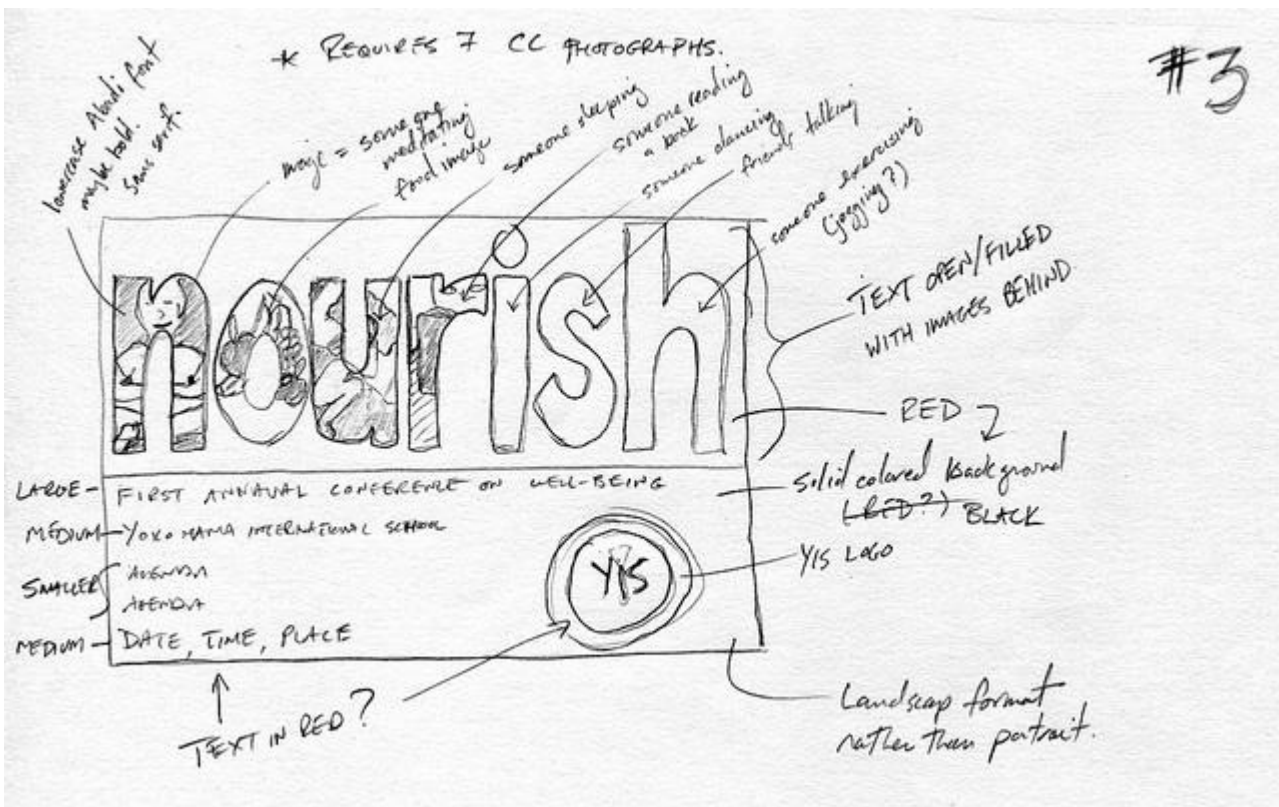 * REQUIRES 7 CC PHOTOGRAPHS.
#3
lowercase Abadi font
maybe bold.
sans serif.
image = someone
meditating
food image
someone sleeping
someone reading
a book
someone dancing
friends talking
someone exercising
(jogging?)
nourish
TEXT OPEN/FILLED
WITH IMAGES BEHIND
RED
solid colored background
(RED?) BLACK
LARGE - FIRST ANNUAL CONFERENCE ON WELL-BEING
MEDIUM - YOKOHAMA INTERNATIONAL SCHOOL
SMALLER
AGENDA
AGENDA
MEDIUM - DATE, TIME, PLACE
YIS
YIS LOGO
TEXT IN RED?
Landscap format
rather than portrait.